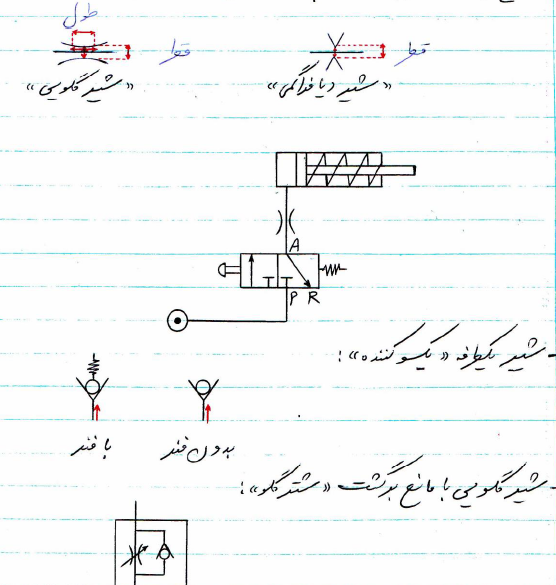 طول
قطر قطر
«شیر گلویی» «شیر دیافراگمی»
A
P R
- شیر یکطرفه «یکسو کننده»:
بدون فنر با فنر
- شیر گلویی با مانع برگشت «شترگلو»: